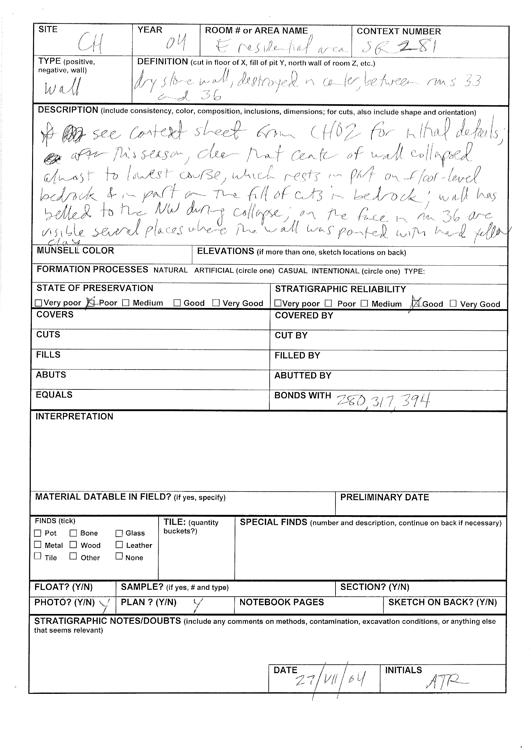 SITE CH
YEAR 04
ROOM # or AREA NAME E residential area
CONTEXT NUMBER SR 281
TYPE (positive, negative, wall) wall
DEFINITION (cut in floor of X, fill of pit Y, north wall of room Z, etc.)
dry stone wall, destroyed in center, between rms 33
and 36
DESCRIPTION (include consistency, color, composition, inclusions, dimensions; for cuts, also include shape and orientation)
see context sheet from CH02 for initial details,
after this season, clear that center of wall collapsed
almost to lowest course, which rests in part on floor-level
bedrock & in part on the fill of cuts in bedrock; wall has
bellied to the NW during collapse, on the face in rm 36 are
visible several places where the wall was pointed with hard yellow
clay
MUNSELL COLOR
ELEVATIONS (if more than one, sketch locations on back)
FORMATION PROCESSES NATURAL ARTIFICIAL (circle one) CASUAL INTENTIONAL (circle one) TYPE:
STATE OF PRESERVATION
STRATIGRAPHIC RELIABILITY
Very poor Poor Medium Good Very Good
Very poor Poor Medium Good Very Good
COVERS
COVERED BY
CUTS
CUT BY
FILLS
FILLED BY
ABUTS
ABUTTED BY
EQUALS
BONDS WITH 280, 317, 394
INTERPRETATION
MATERIAL DATABLE IN FIELD? (if yes, specify)
PRELIMINARY DATE
FINDS (tick)
Pot Bone Glass
Metal Wood Leather
Tile Other None
TILE: (quantity buckets?)
SPECIAL FINDS (number and description, continue on back if necessary)
FLOAT? (Y/N)
SAMPLE? (if yes, # and type)
SECTION? (Y/N)
PHOTO? (Y/N) Y
PLAN ? (Y/N) Y
NOTEBOOK PAGES
SKETCH ON BACK? (Y/N)
STRATIGRAPHIC NOTES/DOUBTS (include any comments on methods, contamination, excavation conditions, or anything else
that seems relevant)
DATE 27/VII/04
INITIALS ATR